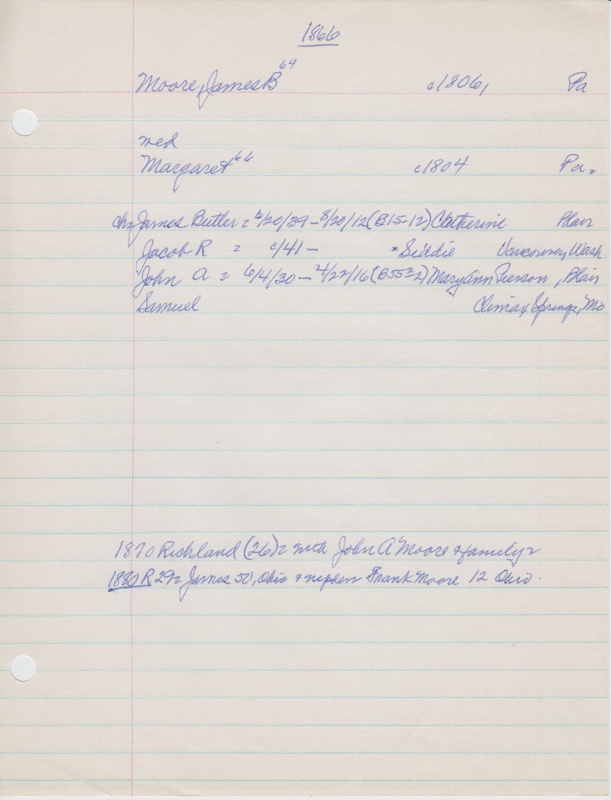 1866
Moore, James B 64 c1806, Pa
med
Margaret 66 c1804 Pa.
ch= James Butler = 6/20/39 - 8/20/12 (B15-12) Catherine Blair
Jacob R = c/41 - Siddie Vancouver, Wash
John A = 6/4/30 - 4/22/16 (B552-2) Mary Ann Pierson, Blair
Samuel Climax Springs, Mo
1870 Richland (26) = with John A Moore & family =
1880 R 29 = James 50, Ohio & nephew Frank Moore 12 Ohio.